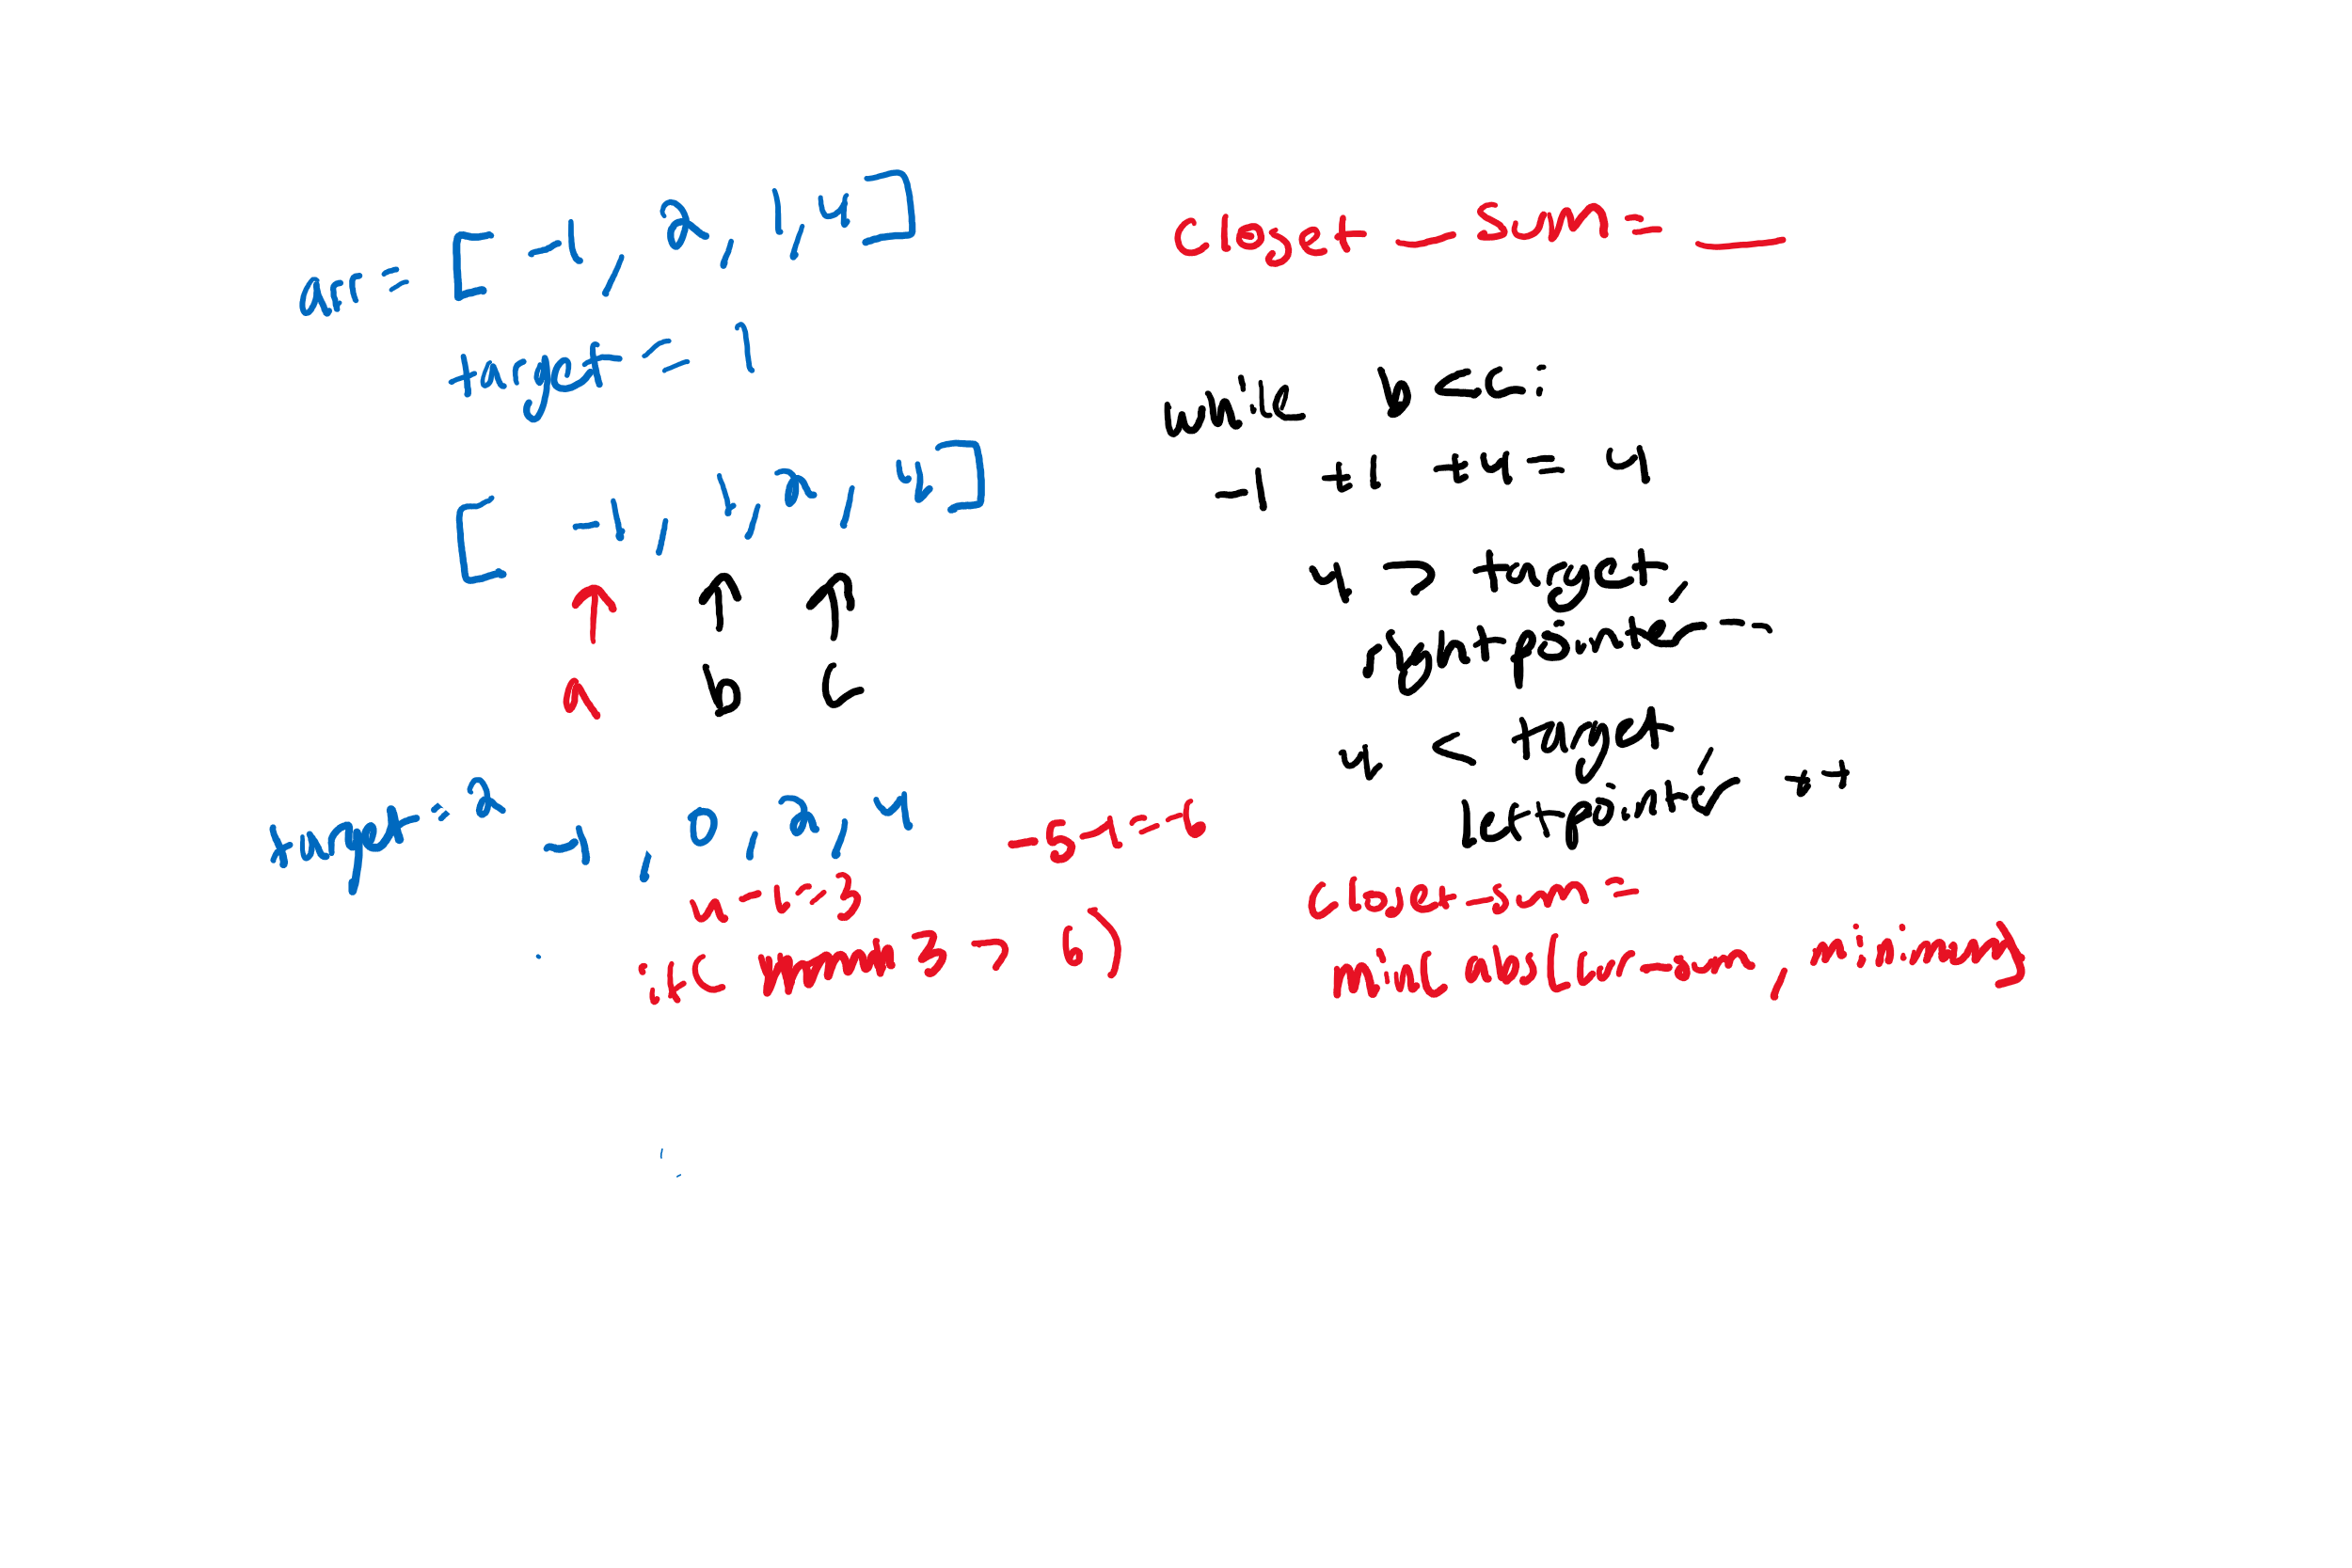 arr = [ -1, 2, 1, 4]
target = 1
[ -1, 1, 2, 4]
a b c
target = 2 -1, 0, 2, 4
-5 -1 = -6
4 - 1 = 3
if( 3 > 6)
closet _ Sum = __
while b < c:
-1 +1 +4 = 4
4 > taget,
rightpointer --
4 < taget,
Leftpointer ++
closet_sum =
min( abs( curr-sum, minimum)